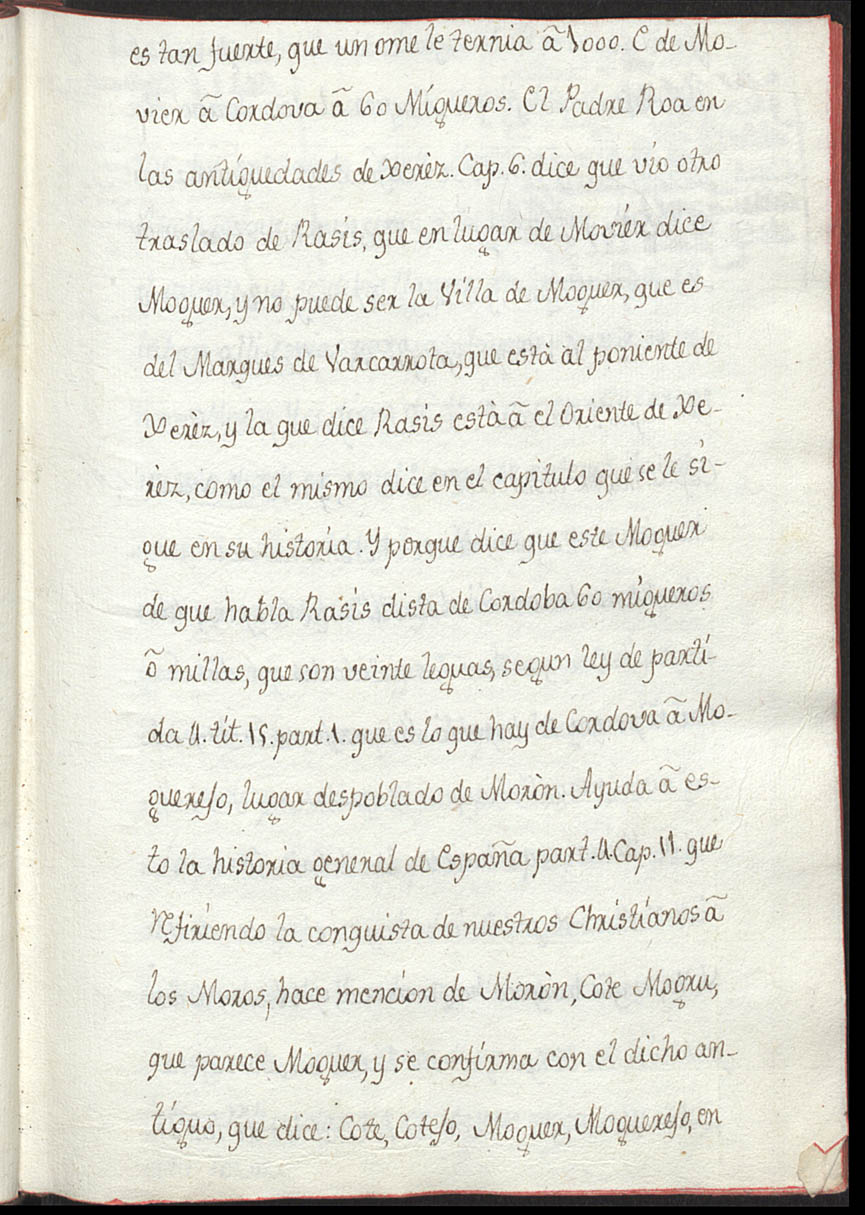 es tan fuerte, que un ome le ternia ã 1000. E de Mo-
vier ã Cordova ã 60 Migueros. El Padre Roa en
las antiguedades de Xerèz. Cap. 6. dice que vio otro
traslado de Rasis, que en lugar de Moviér dice
Moguer, y no puede ser la Villa de Moguer, que es
del Marques de Varcarrota, que està al poniente de
Xerèz, y la que dice Rasis està ã el Oriente de Xe-
rèz, como el mismo dice en el capitulo que se le si-
gue en su historia. Y porque dice que este Moguer
de que habla Rasis dista de Cordoba 60 migueros
õ millas, que son veinte leguas, segun ley de parti-
da 4. tit. 15. part. 1. que es lo que hay de Cordova ã Mo-
guerejo, lugar despoblado de Moròn. Ayuda ã es-
to la historia general de España part. 4. Cap. 11. que
refiriendo la conquista de nuestros Christianos ã
los Moros, hace mencion de Moròn, Cote Mogru,
que parece Moguer, y se confirma con el dicho an-
tiguo, que dice: Cote, Cotejo, Moguer, Moguerejo, en